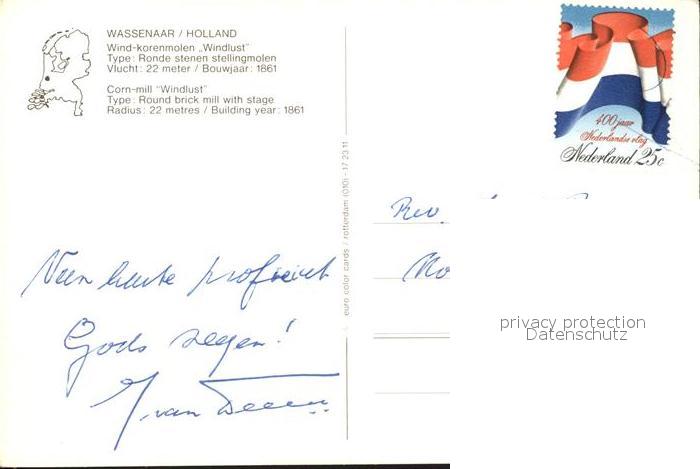 WASSENAAR / HOLLAND
Wind-korenmolen „Windlust”
Type: Ronde stenen stellingmolen
Vlucht: 22 meter / Bouwjaar: 1861
Corn-mill "Windlust"
Type: Round brick mill with stage
Radius: 22 metres / Building year: 1861
euro color cards / rotterdam (010) - 17 23 11
400 jaar
Nederlandse vlag
Nederland 25c
Rev.
proficiat
Gods zegen!
van
privacy protection
Datenschutz